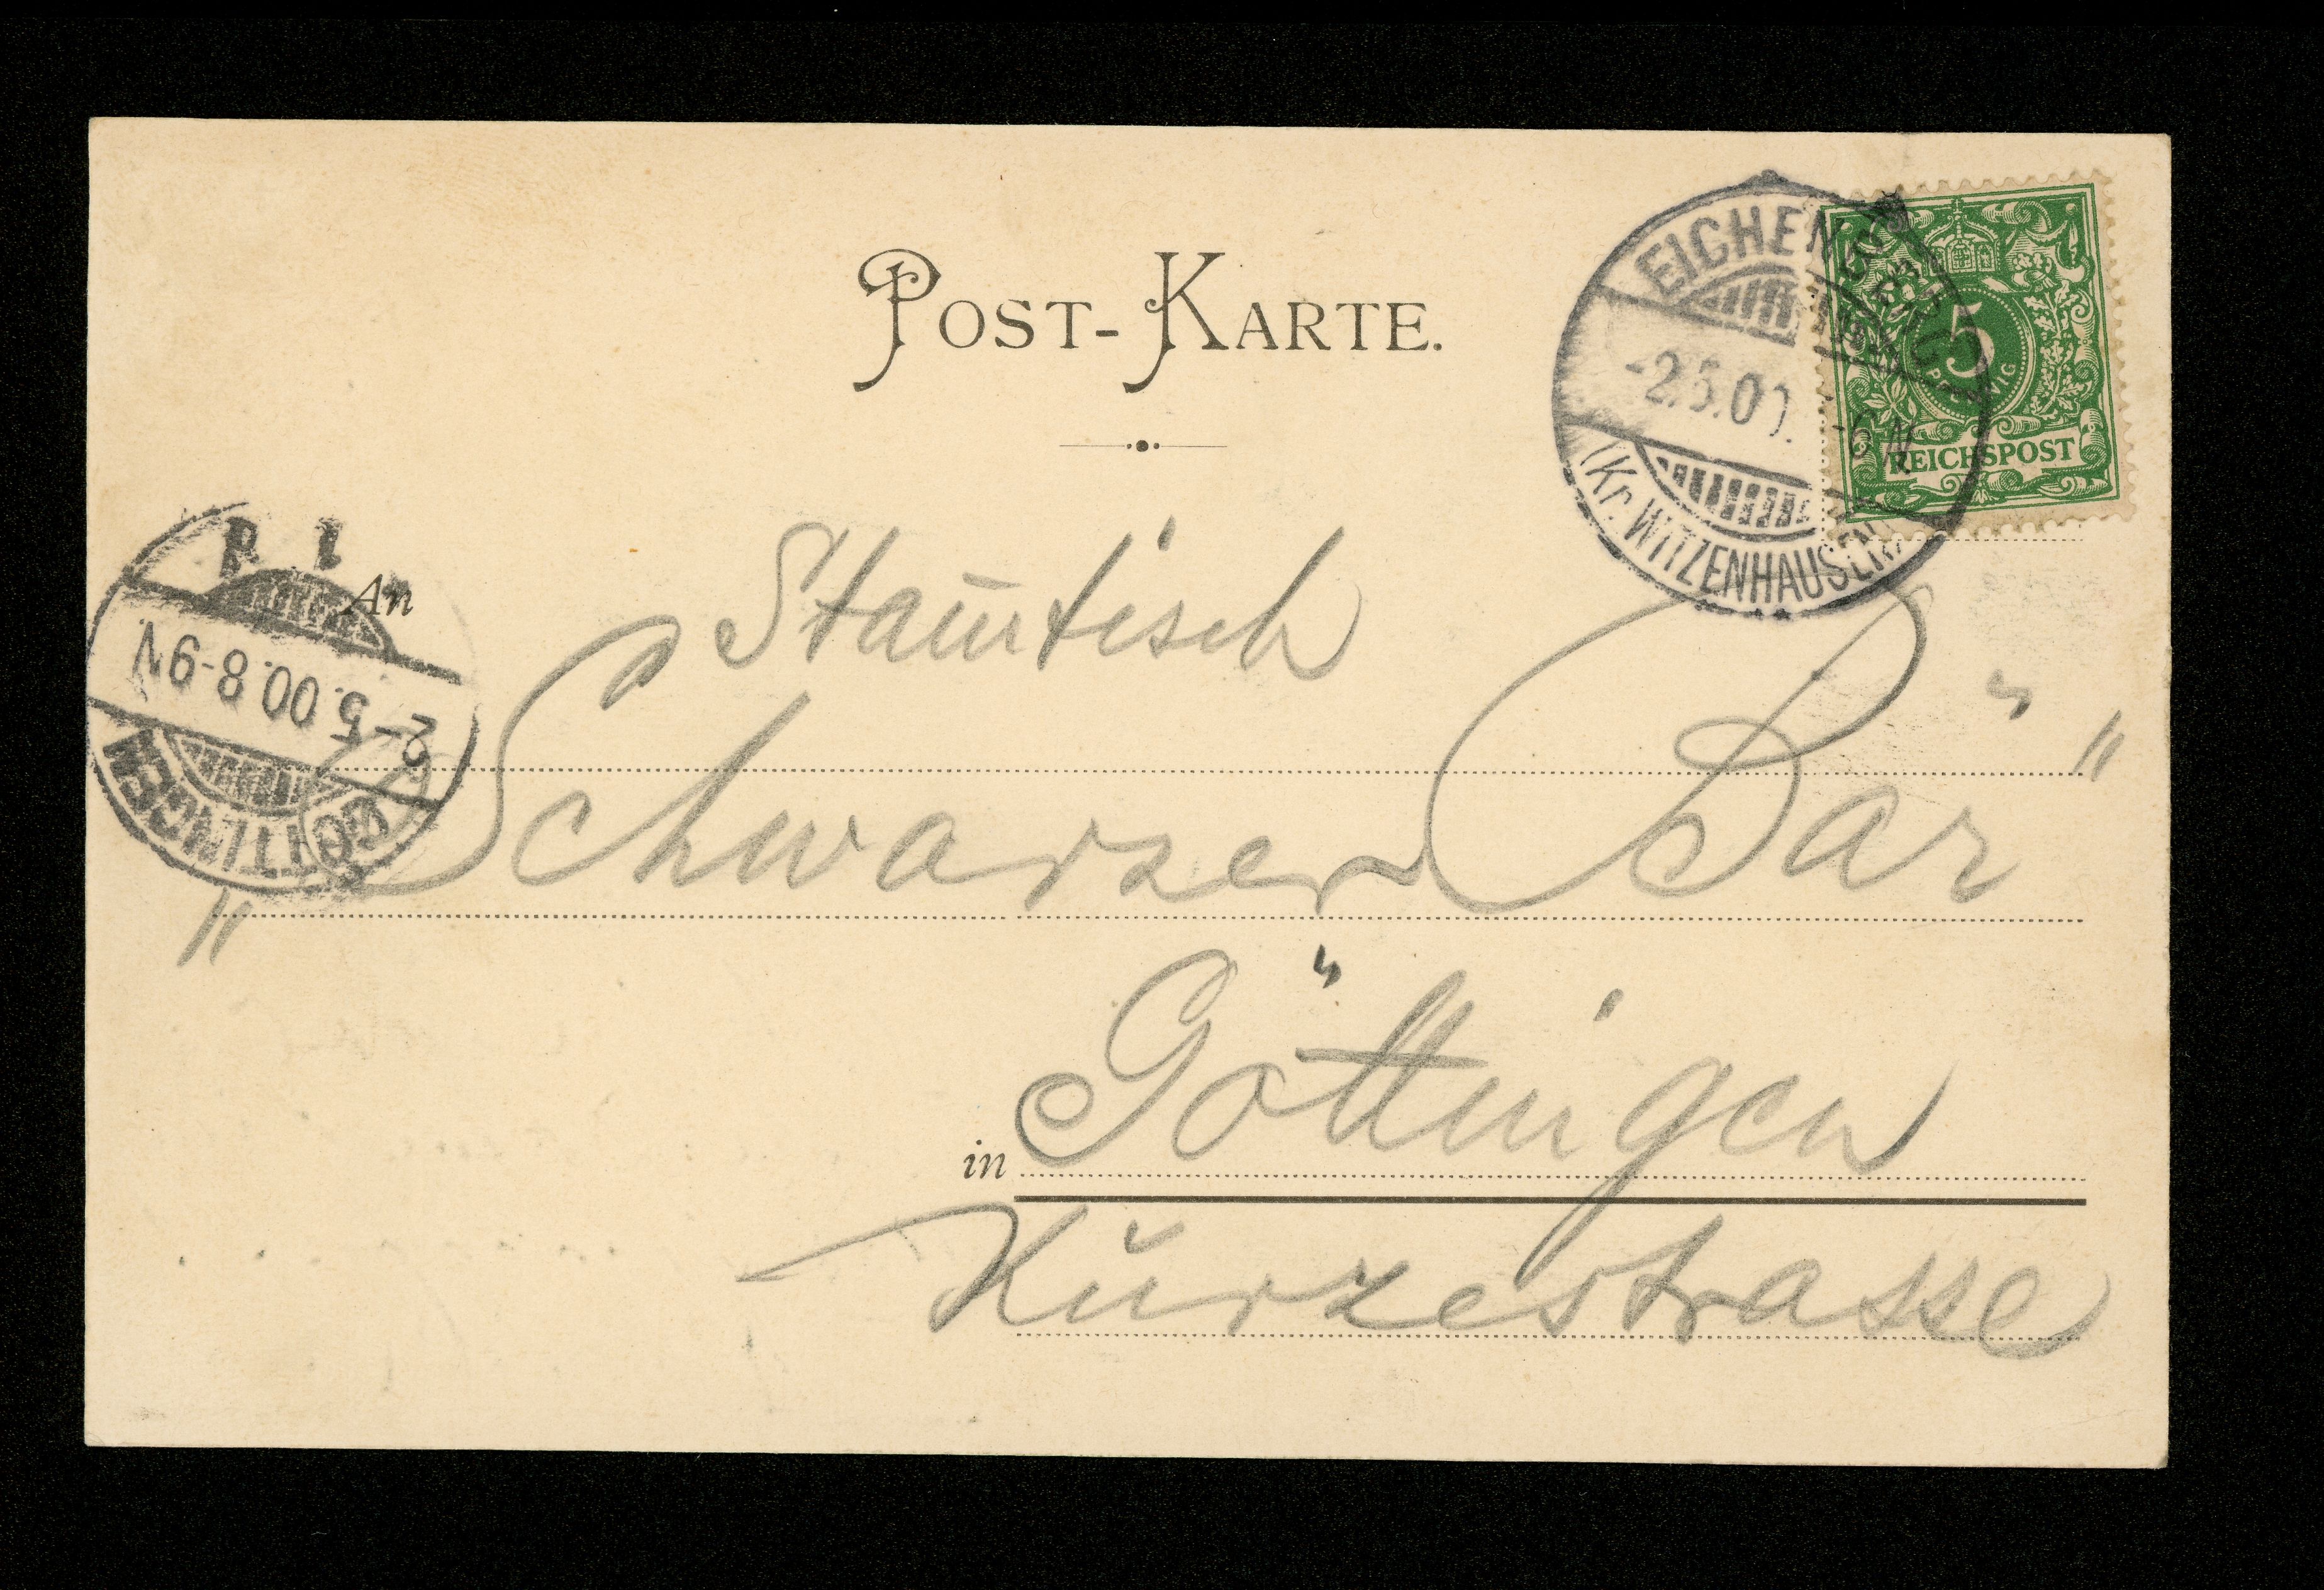 POST-KARTE.
EICHENBERG
-2.5.00. -6 N
(Kr. WITZENHAUSEN)
5
PFENNIG
REICHSPOST
An
GÖTTINGEN
2-5.00.8-9N
Stam̄tisch
„Schwarzer Bär"
in Göttingen
Kŭrzestrasse